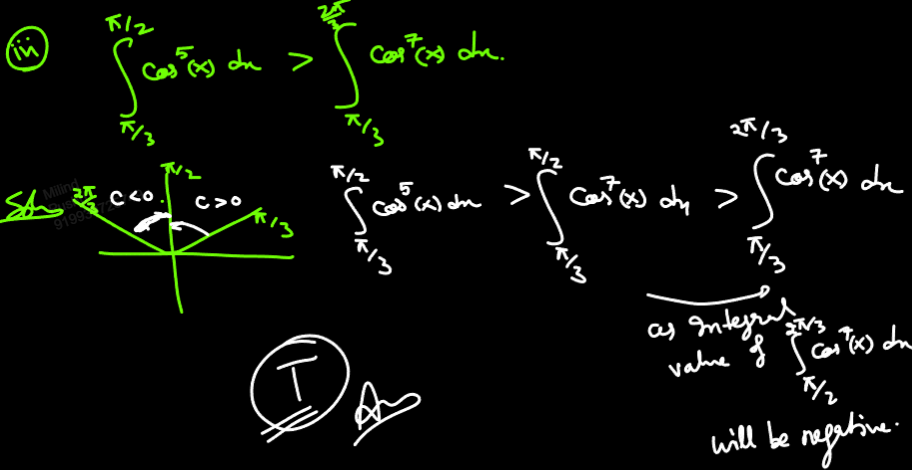 (iii) ∫_{π/3}^{π/2} cos^5(x) dx > ∫_{π/3}^{2π/3} cos^7(x) dx.
Soln
2π/3 C<0 π/2 C>0 π/3
∫_{π/3}^{π/2} cos^5(x) dx > ∫_{π/3}^{π/2} cos^7(x) dx > ∫_{π/3}^{2π/3} cos^7(x) dx
as integral
value of ∫_{π/2}^{2π/3} cos^7(x) dx
will be negative.
T
Ans